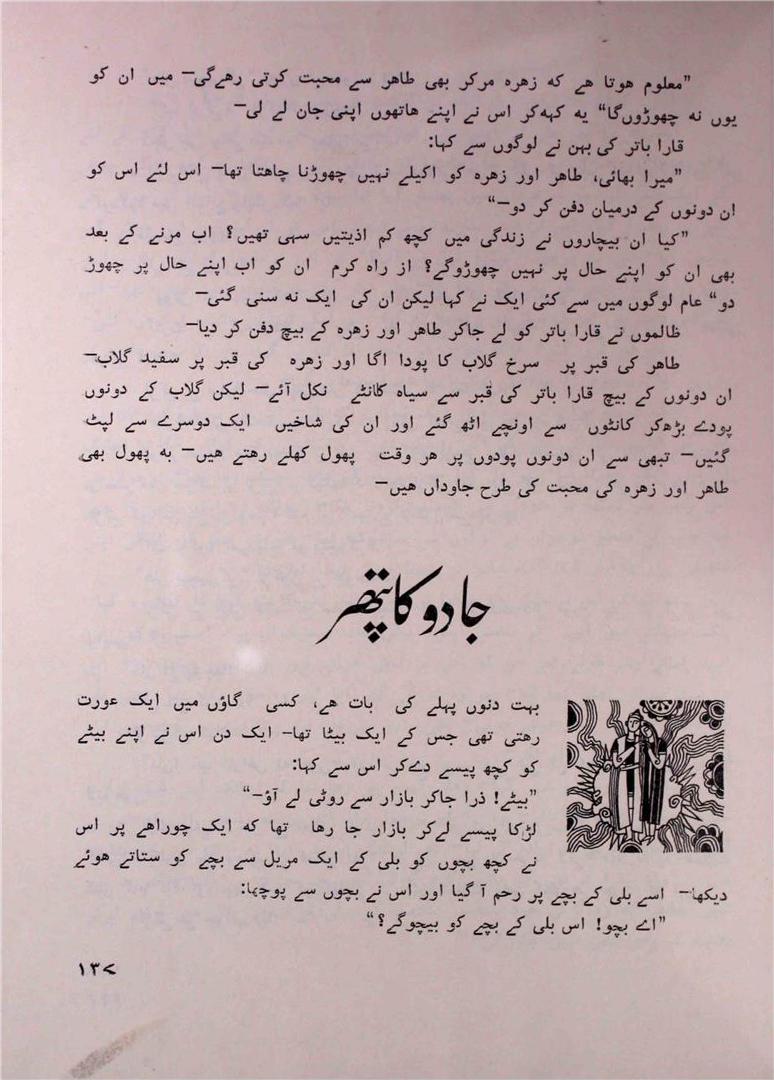 ”معلوم هوتا هے که زهره مرکر بھی طاهر سے محبت کرتی رهےگی— میں ان کو
یوں نه چھوڑوںگا“ یه کہه‌کر اس نے اپنے هاتھوں اپنی جان لے لی—
قارا باتر کی بہن نے لوگوں سے کہا:
”میرا بھائی، طاهر اور زهره کو اکیلے نہیں چھوڑنا چاهتا تھا— اس لئے اس کو
ان دونوں کے درمیان دفن کر دو—“
”کیا ان بیچاروں نے زندگی میں کچھ کم اذیتیں سہی تھیں؟ اب مرنے کے بعد
بھی ان کو اپنے حال پر نہیں چھوڑوگے؟ از راه کرم ان کو اب اپنے حال پر چھوڑ
دو“ عام لوگوں میں سے کئی ایک نے کہا لیکن ان کی ایک نه سنی گئی—
ظالموں نے قارا باتر کو لے جاکر طاهر اور زهره کے بیچ دفن کر دیا—
طاهر کی قبر پر سرخ گلاب کا پودا اگا اور زهره کی قبر پر سفید گلاب—
ان دونوں کے بیچ قارا باتر کی قبر سے سیاه کانٹے نکل آئے— لیکن گلاب کے دونوں
پودے بڑھ‌کر کانٹوں سے اونچے اٹھ گئے اور ان کی شاخیں ایک دوسرے سے لپٹ
گئیں— تبھی سے ان دونوں پودوں پر هر وقت پھول کھلے رهتے هیں— یه پھول بھی
طاهر اور زهره کی محبت کی طرح جاوداں هیں—
جادو کا پتھر
بہت دنوں پہلے کی بات هے، کسی گاؤں میں ایک عورت
رهتی تھی جس کے ایک بیٹا تھا— ایک دن اس نے اپنے بیٹے
کو کچھ پیسے دےکر اس سے کہا:
”بیٹے! ذرا جاکر بازار سے روٹی لے آؤ—“
لڑکا پیسے لےکر بازار جا رها تھا که ایک چوراهے پر اس
نے کچھ بچوں کو بلی کے ایک مریل سے بچے کو ستاتے هوئے
دیکھا— اسے بلی کے بچے پر رحم آ گیا اور اس نے بچوں سے پوچھا:
”اے بچو! اس بلی کے بچے کو بیچوگے؟“
۱۳۷